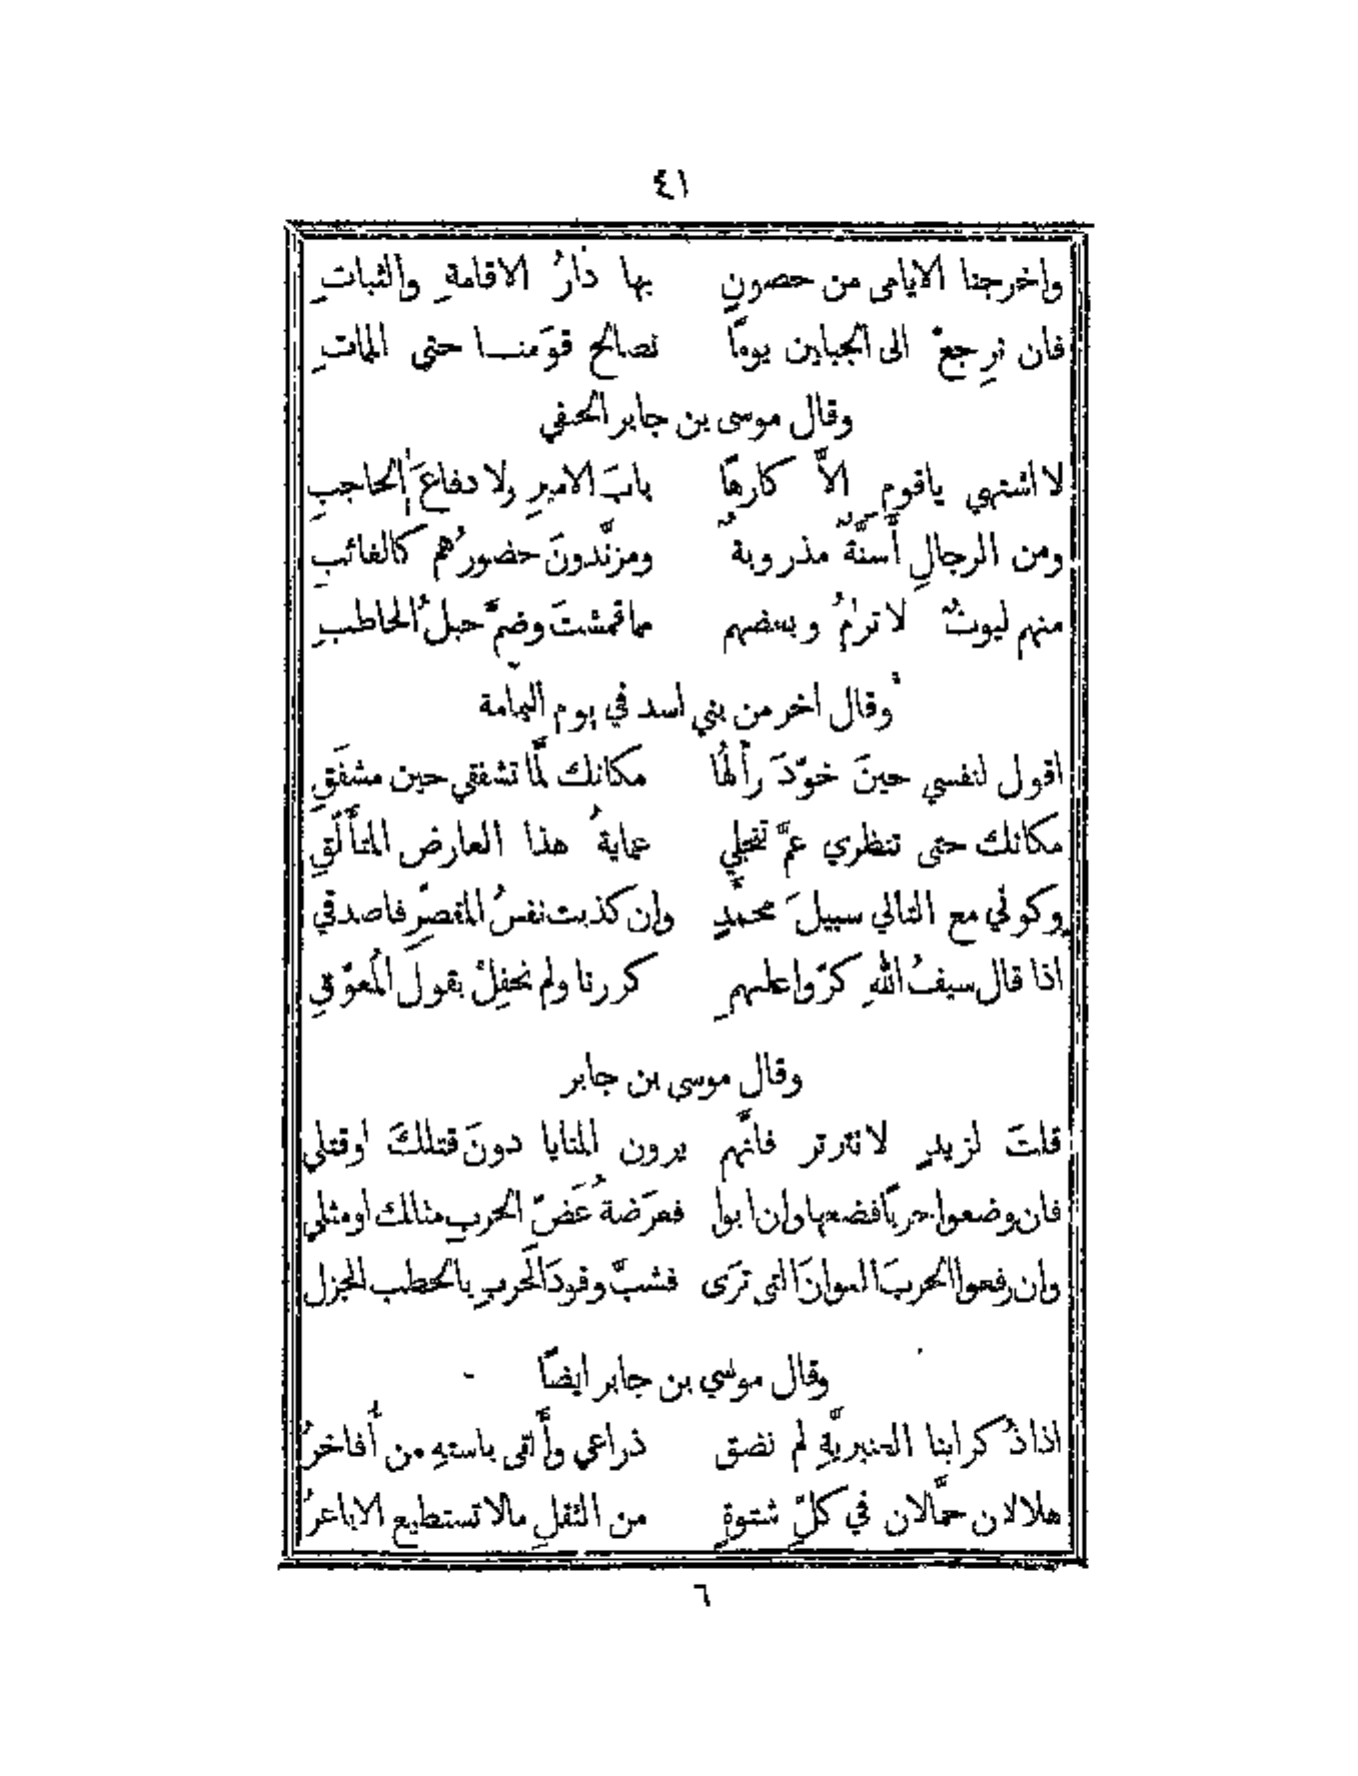 ٤١
واخرجنا الايامى من حصونٍ بها دارُ الاقامةِ والثباتِ
فان نرِجعْ الى الجبلين يومًا نصالح قومَنا حتى المماتِ
وقال موسى بن جابر الحنفي
لا اشتهي ياقومِ الاَّ كارهًا بابَ الاميرِ ولا دفاعَ الحاجبِ
ومن الرجالِ أَسنَّةٌ مذروبةٌ ومزنَّدونَ حضورُهم كالغائبِ
منهم ليوثٌ لا ترامُ وبعضهم مما قمشتَ وضمَّ حبلُ الحاطبِ
وقال اخر من بني اسد في يوم اليمامة
اقول لنفسي حينَ خوَّدَ رأْلُها مكانك لمَّا تشفقي حين مشفَقِ
مكانك حتى تنظري عمَّ تنجلي عمايةُ هذا العارض المتأَلّقِ
وكوني مع التالي سبيلَ محمَّدٍ وان كذبت نفسُ المقصّرِ فاصدقي
اذا قال سيفُ اللهِ كرّوا عليهمِ كررنا ولم نحفِلْ بقولَ المُعوّقِ
وقال موسى بن جابر
قلتَ لزيدٍ لا تترتر فانَّهم يرون المنايا دونَ قتلكَ اوقتلي
فان وضعوا حربًا فضعها وان ابوا فعرَضةُ عَضّ الحربِ مثلك اومثلي
وان رفعوا الحربَ العوانَ التي ترَى فشبَّ وقودَ الحَربِ بالحطب الجزل
وقال موسي بن جابر ايضًا
اذا ذُكر ابنا العنبريَّةِ لم تضق ذراعي وأَلقى باستهِ من أُفاخرُ
هلالان حمَّالان في كلّ شتوةٍ من الثقلِ مالا تستطيع الاباعرُ
٦